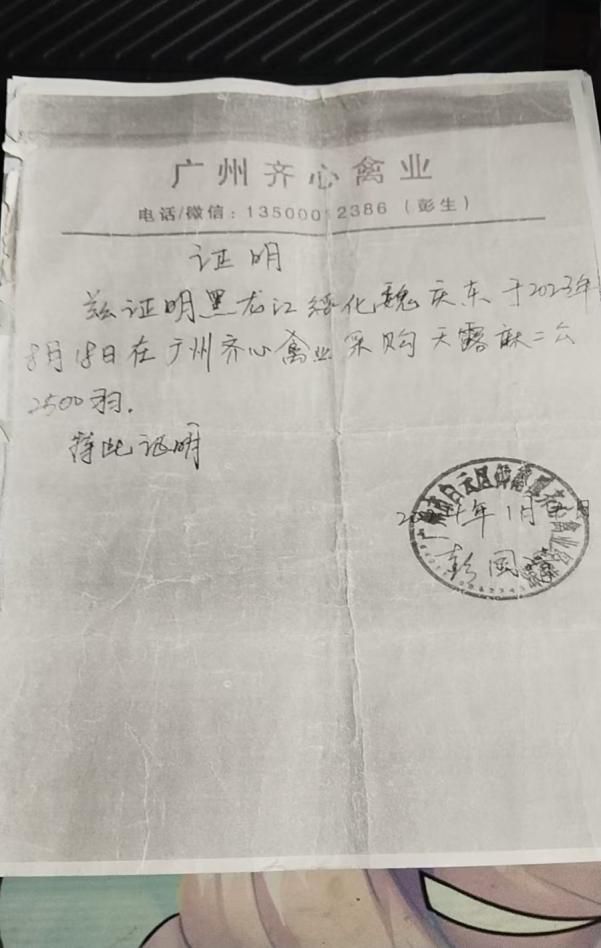 广州齐心禽业
电话/微信：13500012386（彭生）
证明
兹证明黑龙江绥化魏庆东于2023年
8月18日在广州齐心禽业采购天露麻二公
2500羽.
特此证明
年1月
彭